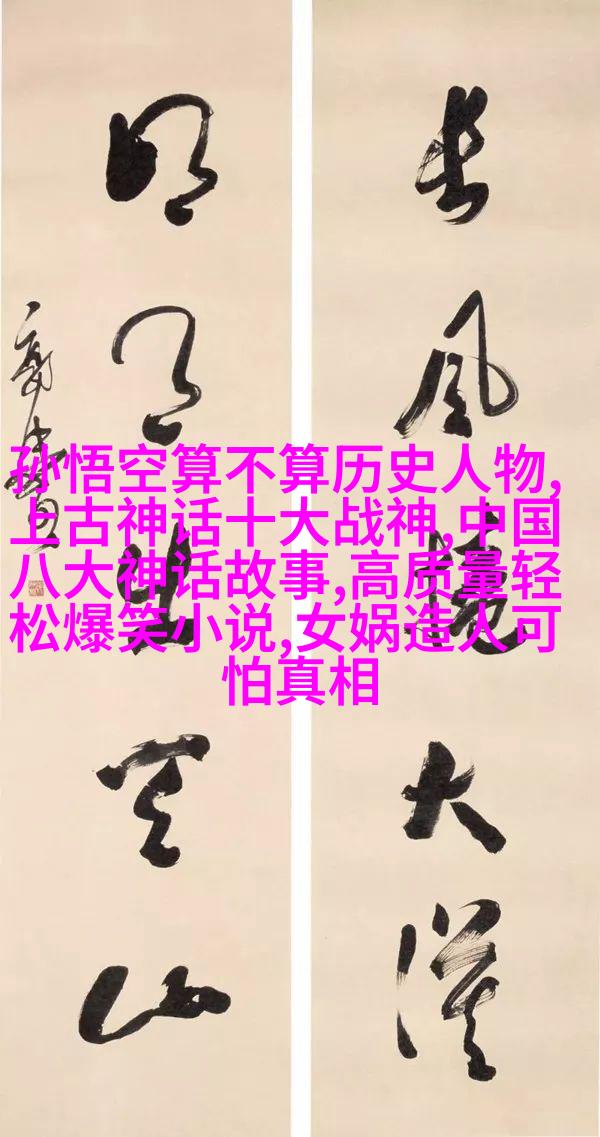 孙悟空算不算历史人物,
上古神话十大战神,中国
八大神话故事,高质量轻
松爆笑小说,女娲造人可
怕真相
长风大漠
明月出天山